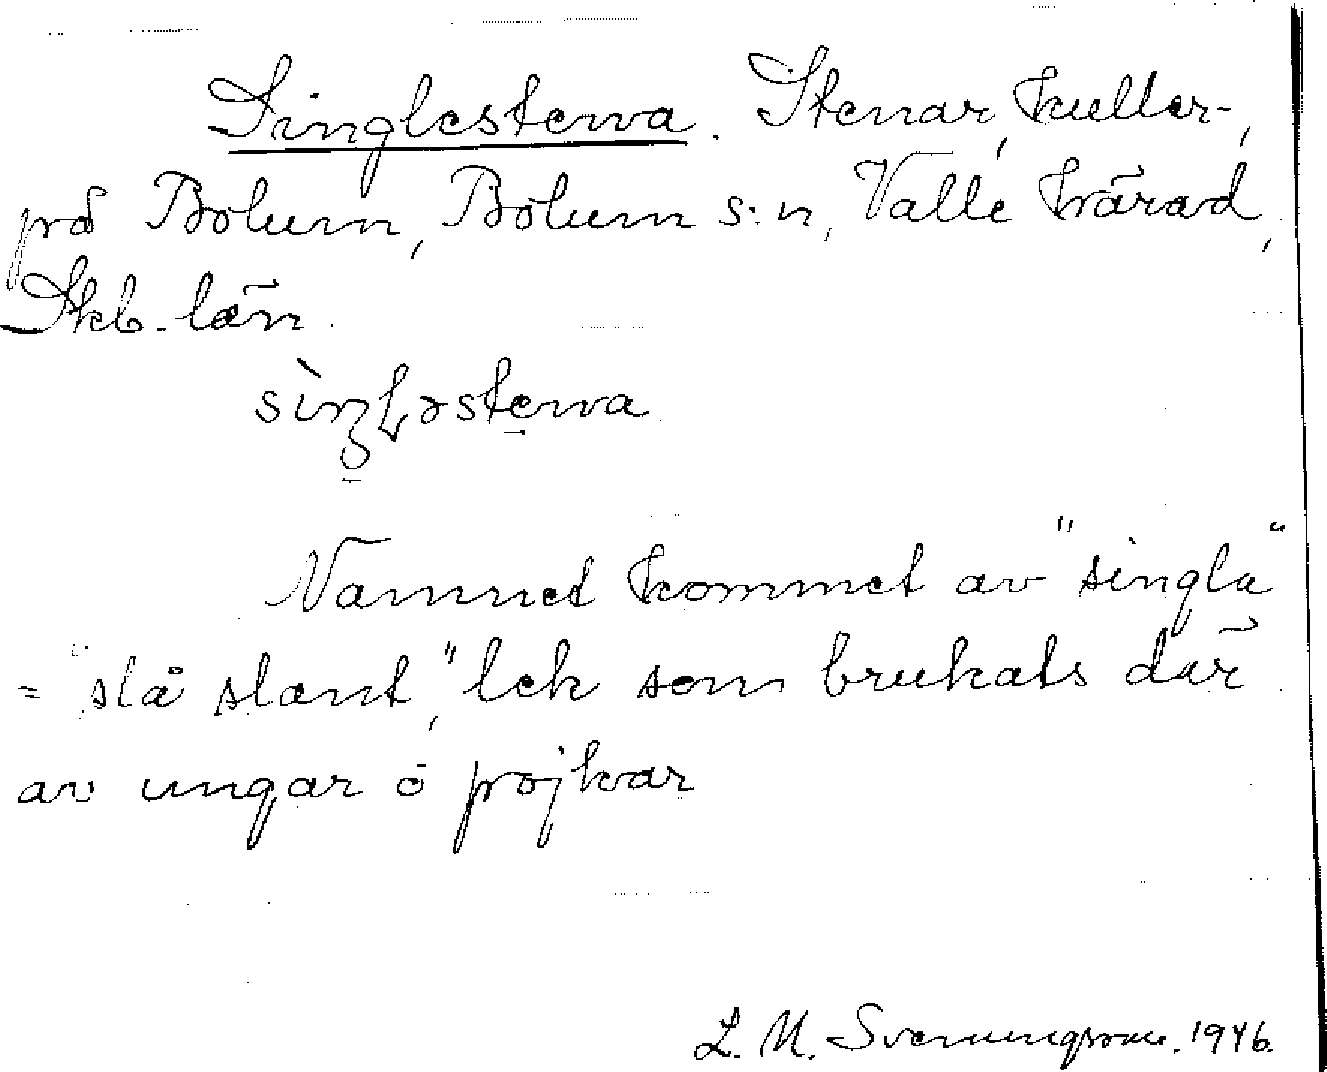 Singlestena. Stenar, kuller-,
på Bolum, Bolum s:n, Valle härad,
Skb. län.
sìŋɫəstena
Namnet kommet av "singla"
= "slå slant," lek som brukats där
av ungar o pojkar
L. M. Svenungsson. 1946.